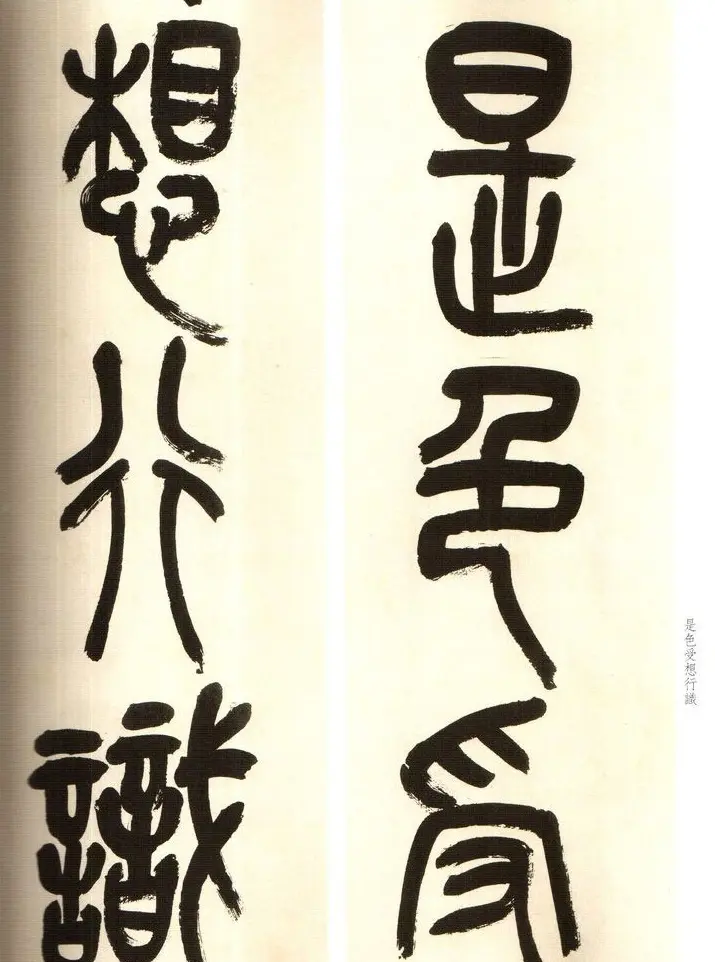 是色受
想行識
是色受想行識